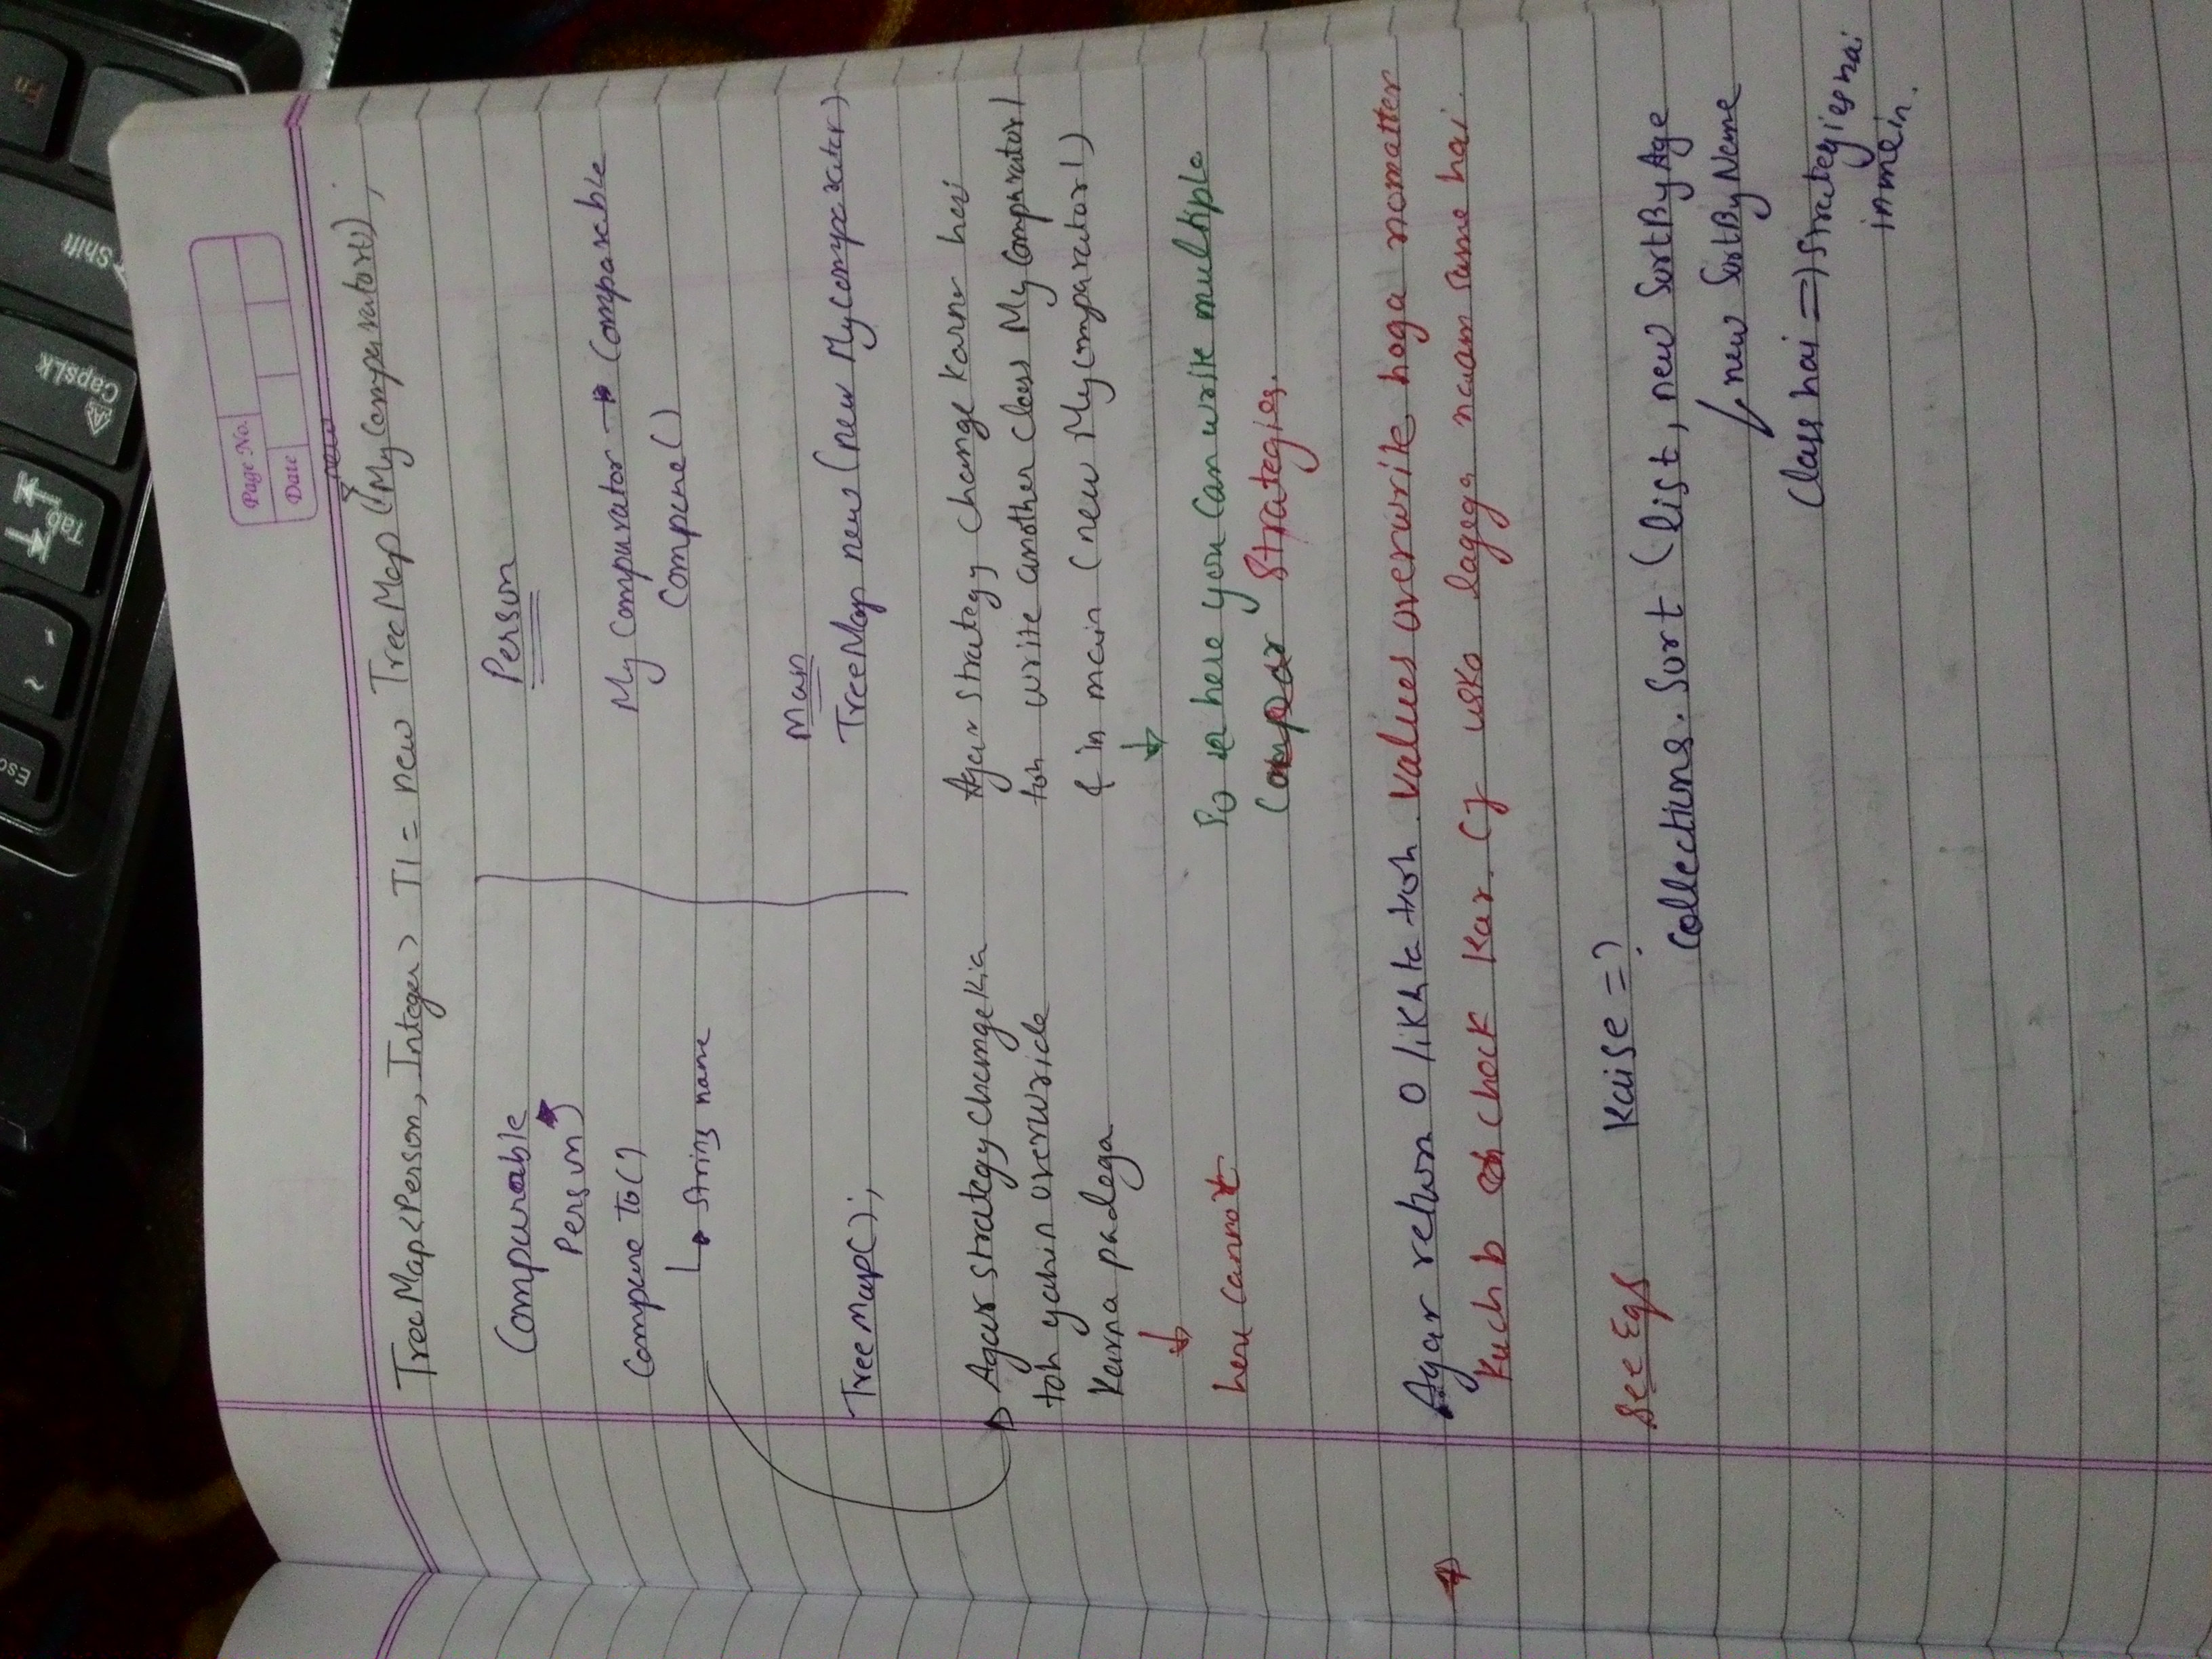 Esc
~ `
Tab
CapsLk
Shift
Fn
Page No.
Date
new
TreeMap<Person, Integer> T1 = new TreeMap (MyComparator());
Comparable
Person
Compare To()
String name
TreeMap();
Person
My Comparator → Comparable
Compare()
Main
TreeMap new (new MyComparator)
Agar strategy change kia
toh yahin overwride
karna padega
↓
here cannot
Agar strategy change karna hai
toh write another class MyComparator1
& in main (new MyComparator1)
↓
So here you can write multiple
Compar Strategies.
Agar return 0 likhta toh values overwrite hoga nomatter
kuch b check kar. Cz usko lagega naam same hai.
See Egs Kaise =?
Collections.Sort (list, new SortByAge
new SortByName
Class hai => strategies hai
inmein.